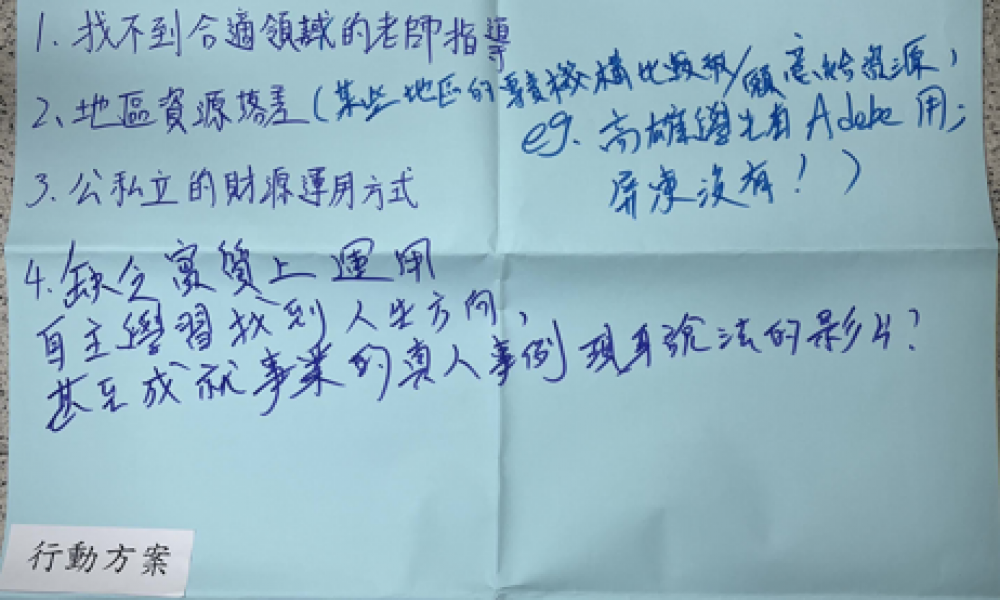 1. 找不到合適領域的老師指導
2、地區資源落差(某些地區的專責機構比較敢/願意給資源,
eg. 高雄學生有 Adobe 用;
屏東沒有!)
3. 公私立的財源運用方式
4. 缺乏實質上運用
自主學習找到人生方向,
甚至成就事業的真人事例現身說法的影片?
行動方案